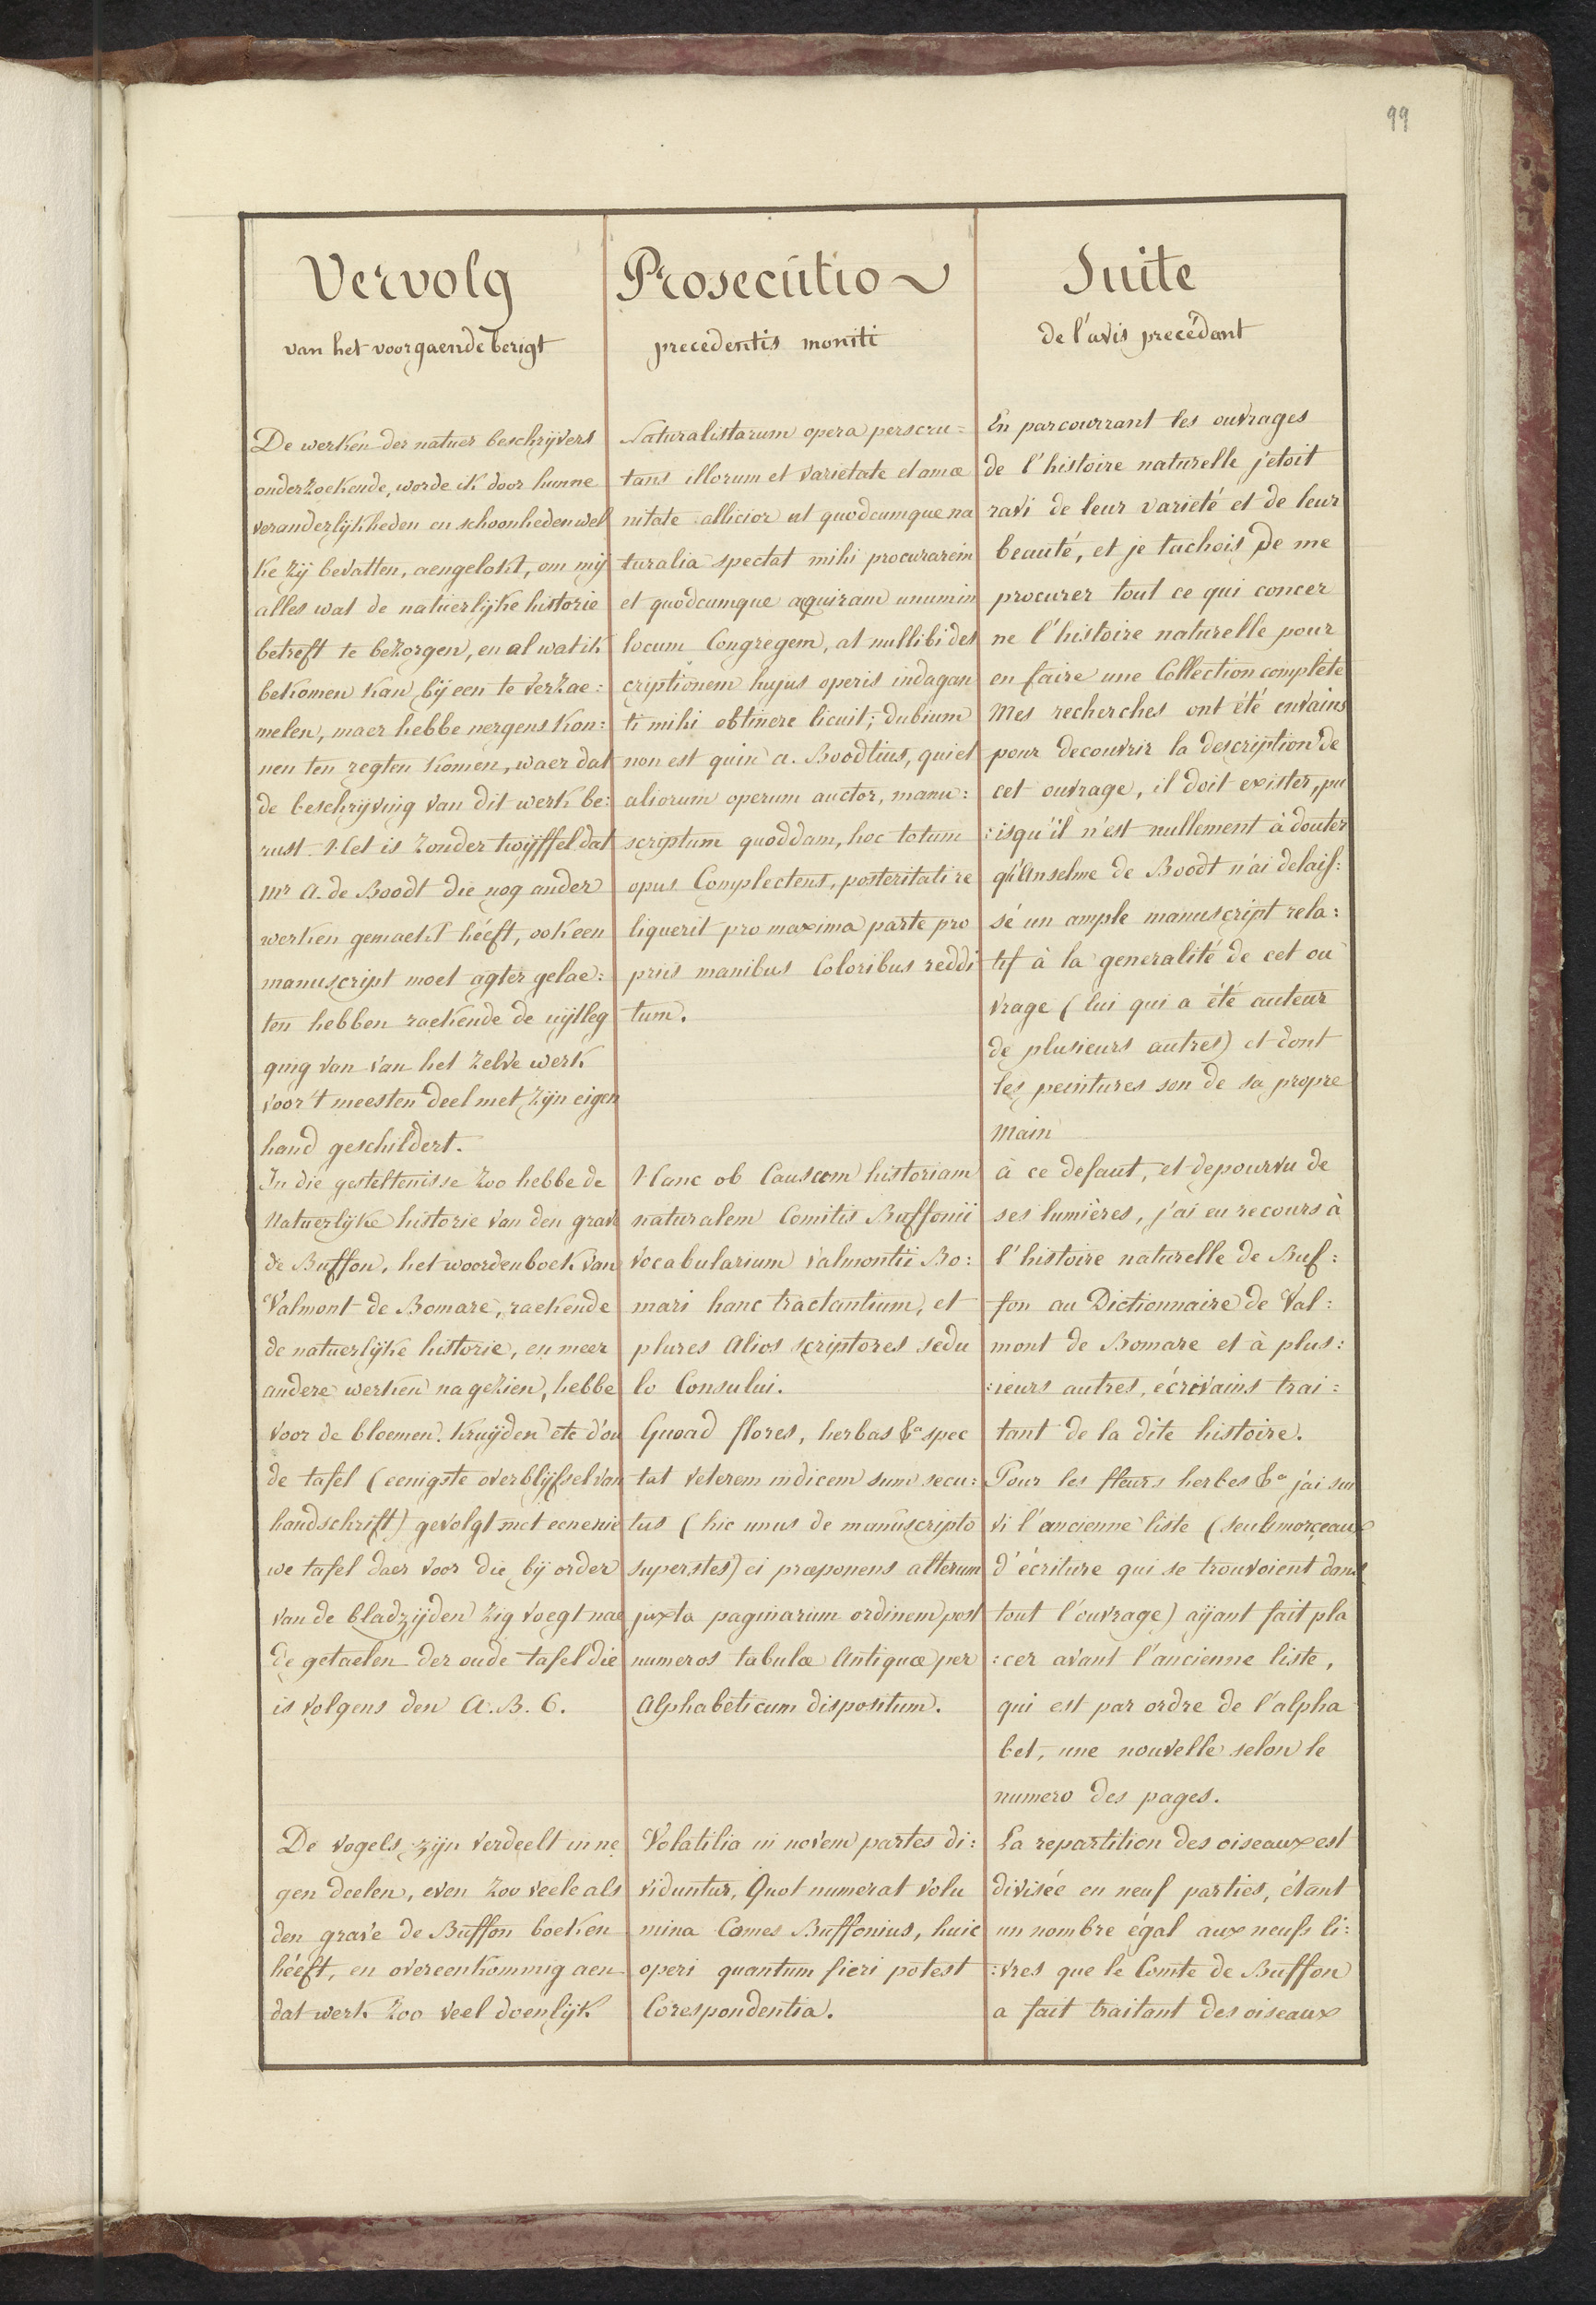 99
Vervolg
van het voorgaende berigt
De werken der natuer beschrijvers
onderzoekende, worde ik door hunne
veranderlijkheden en schoonheden wel
ke zij bevatten, aengelokt, om mij
alles wat de natuerlijke historie
betreft te bezorgen, en al wat ik
bekomen kan bij een te verzae:
melen, maer hebbe nergens kon:
nen ten regten komen, waer dat
de beschrijving van dit werk be:
rust. Het is zonder twijffel dat
Mr A. de Boodt die nog ander
werken gemaekt héeft, ook een
manuscript moet agter gelae:
ten hebben raekende de uijtleg
ging van van het zelve werk
voor 't meesten deel met zijn eigen
hand geschildert.
In die gesteltenisse zoo hebbe de
Natuerlijke historie van den grave
de Buffon, het woordenboek van
Valmont de Bomare, raekende
de natuerlijke historie, en meer
andere werken na gezien, hebbe
voor de bloemen. kruijden etc d'ou
de tafel (eenigste overblijfsel van
handschrift) gevolgt met eene nie
we tafel daer voor die bij order
van de bladzijden zig voegt nae
de getaelen der oude tafel die
is volgens den A. B. C.
De vogels zijn verdeelt in ne
gen deelen, even zoo veele als
den grave de Buffon boeken
héeft, en overeenkomnig aen
dat werk zoo veel doenlijk
Prosecutio
precedentis moniti
Naturalistarum opera perscru=
tans illorum et varietate et amœ
nitate allicior ut quodcumque na
turalia spectat mihi procurarem
et quodcumque aquiram unum in
locum Congregem, at nullibi des
criptionem hujus operis indagan
ti mihi obtinere licuit; dubium
non est quin a. Boodtius, qui et
aliorum operum auctor, manu:
scriptum quoddam, hoc totum
opus Complectens, posteritati re
liquerit pro maxima parte pro
priis manibus Coloribus reddi
tum.
Hanc ob Causam historiam
naturalem Comitis Buffonii
vocabularium valmontii Bo:
mari hanc tractantium, et
plures Alios scriptores sedu
lo Consului.
Guoad flores, herbas &a spec
tat veterem indicem sum secu:
tus (hic unus de manuscripto
superstes) ei præponens alterum
juxta paginarum ordinem post
numeros tabulæ Antiquæ per
Alphabeticum dispositum.
Volatilia in novem partes di:
viduntur, Quot numerat volu
mina Comes Buffonius, huic
operi quantum fieri potest
Corespondentia.
Suite
de l'avis precédant
En parcourrant les ouvrages
de l'histoire naturelle j'etoit
ravi de leur varieté et de leur
beauté, et je tachois de me
procurer tout ce qui concer
ne l'histoire naturelle pour
en faire une Collection complète
Mes recherches ont été envains
pour decouvrir la description de
cet ouvrage, il doit exister, pu
:isqu'il n'est nullement à douter
qu'Anselme de Boodt n'ai delais:
sé un ample manuscript rela:
tif à la generalité de cet ou
vrage (lui qui a été auteur
de plusieurs autres) et dont
les peintures son de sa propre
main
à ce defaut, et depourvu de
ses lumières, j'ai eu recours à
l'histoire naturelle de Buf:
fon au Dictionnaire de Val:
mont de Bomare et à plus:
:ieurs autres, écrivains trai:
tant de la dite histoire.
Pour les fleurs herbes &a j'ai sui
vi l'ancienne liste (seuls morçeaux
d'écriture qui se trouvoient dans
tout l'ouvrage) aÿant fait pla
:cer avant l'ancienne liste,
qui est par ordre de l'alpha
bet, une nouvelle selon le
numero des pages.
La repartition des oiseaux est
divisée en neuf parties, étant
un nombre égal aux neufs li:
:vres que le Comte de Buffon
a fait traitant des oiseaux